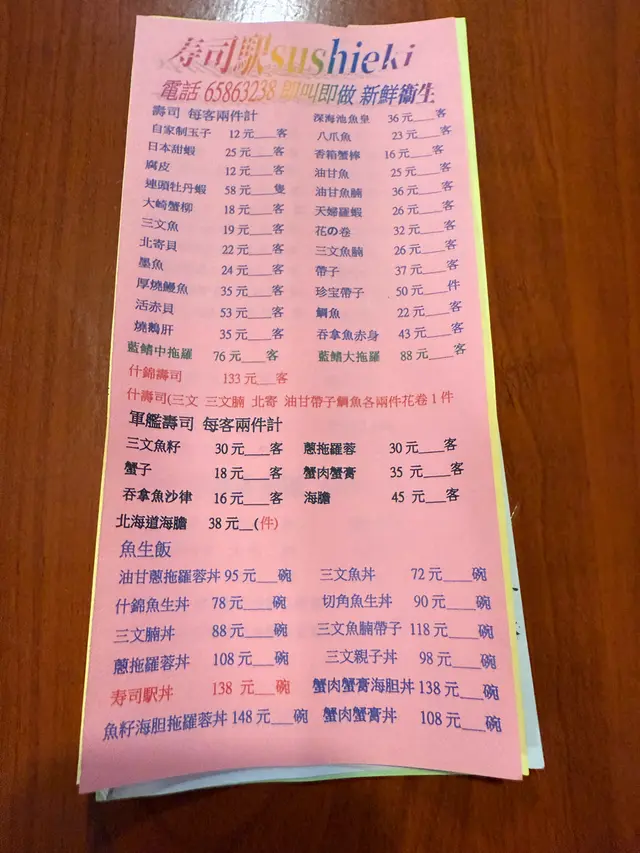 寿司駅sushieki
電話 65863238 即叫即做 新鮮衞生
壽司 每客兩件計 深海池魚皇 36 元___客
自家制玉子 12 元___客 八爪魚 23 元___客
日本甜蝦 25 元___客 香箱蟹檸 16 元___客
腐皮 12 元___客 油甘魚 25 元___客
連頭牡丹蝦 58 元___隻 油甘魚腩 36 元___客
大崎蟹柳 18 元___客 天婦羅蝦 26 元___客
三文魚 19 元___客 花の卷 32 元___客
北寄貝 22 元___客 三文魚腩 26 元___客
墨魚 24 元___客 帶子 37 元___客
厚燒鰻魚 35 元___客 珍宝帶子 50 元___件
活赤貝 53 元___客 鯛魚 22 元___客
燒鵝肝 35 元___客 吞拿魚赤身 43 元___客
藍鰭中拖羅 76 元___客 藍鰭大拖羅 88 元___客
什錦壽司 133 元___客
什壽司(三文 三文腩 北寄 油甘帶子鯛魚各兩件花卷 1 件
軍艦壽司 每客兩件計
三文魚籽 30 元___客 蔥拖羅蓉 30 元___客
蟹子 18 元___客 蟹肉蟹膏 35 元___客
吞拿魚沙律 16 元___客 海膽 45 元___客
北海道海膽 38 元__(件)
魚生飯
油甘蔥拖羅蓉丼 95 元___碗 三文魚丼 72 元____碗
什錦魚生丼 78 元___碗 切角魚生丼 90 元____碗
三文腩丼 88 元___碗 三文魚腩帶子 118 元___碗
蔥拖羅蓉丼 108 元___碗 三文親子丼 98 元____碗
寿司駅丼 138 元___碗 蟹肉蟹膏海胆丼 138 元___碗
魚籽海胆拖羅蓉丼 148 元___碗 蟹肉蟹膏丼 108 元___碗